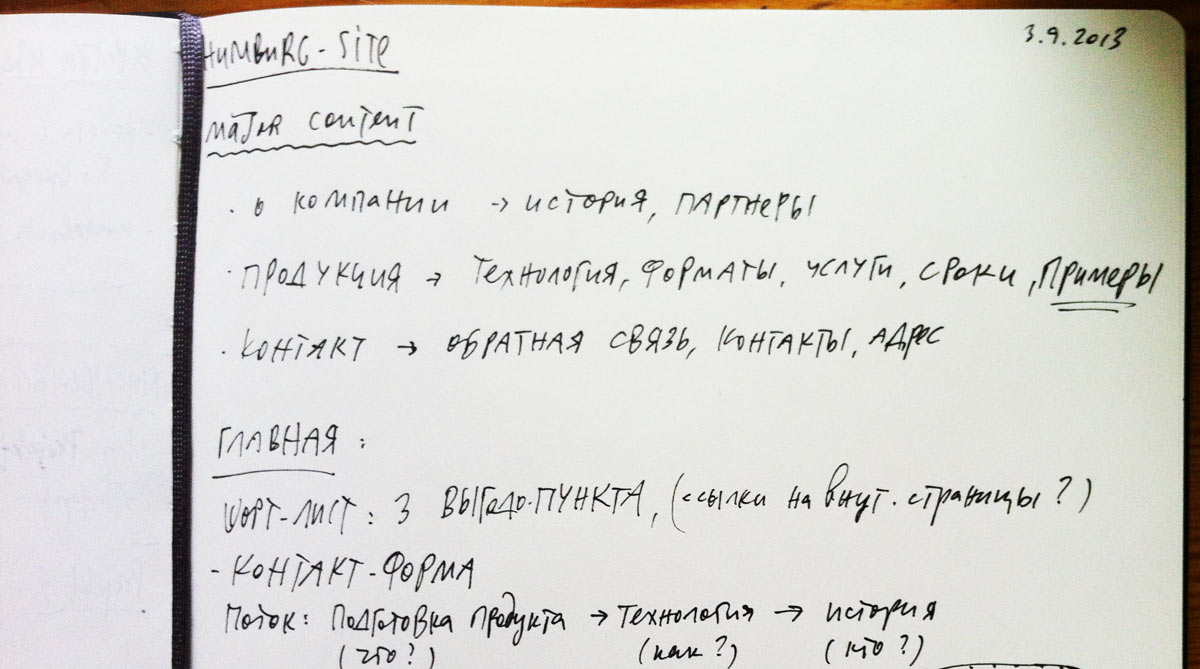 3.9.2013
HUMBURG-Site
MAJOR CONTENT
· О КОМПАНИИ → ИСТОРИЯ, ПАРТНЕРЫ
· ПРОДУКЦИЯ → ТЕХНОЛОГИЯ, ФОРМАТЫ, УСЛУГИ, СРОКИ, ПРИМЕРЫ
· КОНТАКТ → ОБРАТНАЯ СВЯЗЬ, КОНТАКТЫ, АДРЕС
ГЛАВНАЯ :
ШОРТ-ЛИСТ: 3 ВЫГОДО-ПУНКТА, (ссылки на внут. страницы?)
- КОНТАКТ-ФОРМА
Поток: Подготовка продукта → Технология → история
(что?) (как?) (кто?)